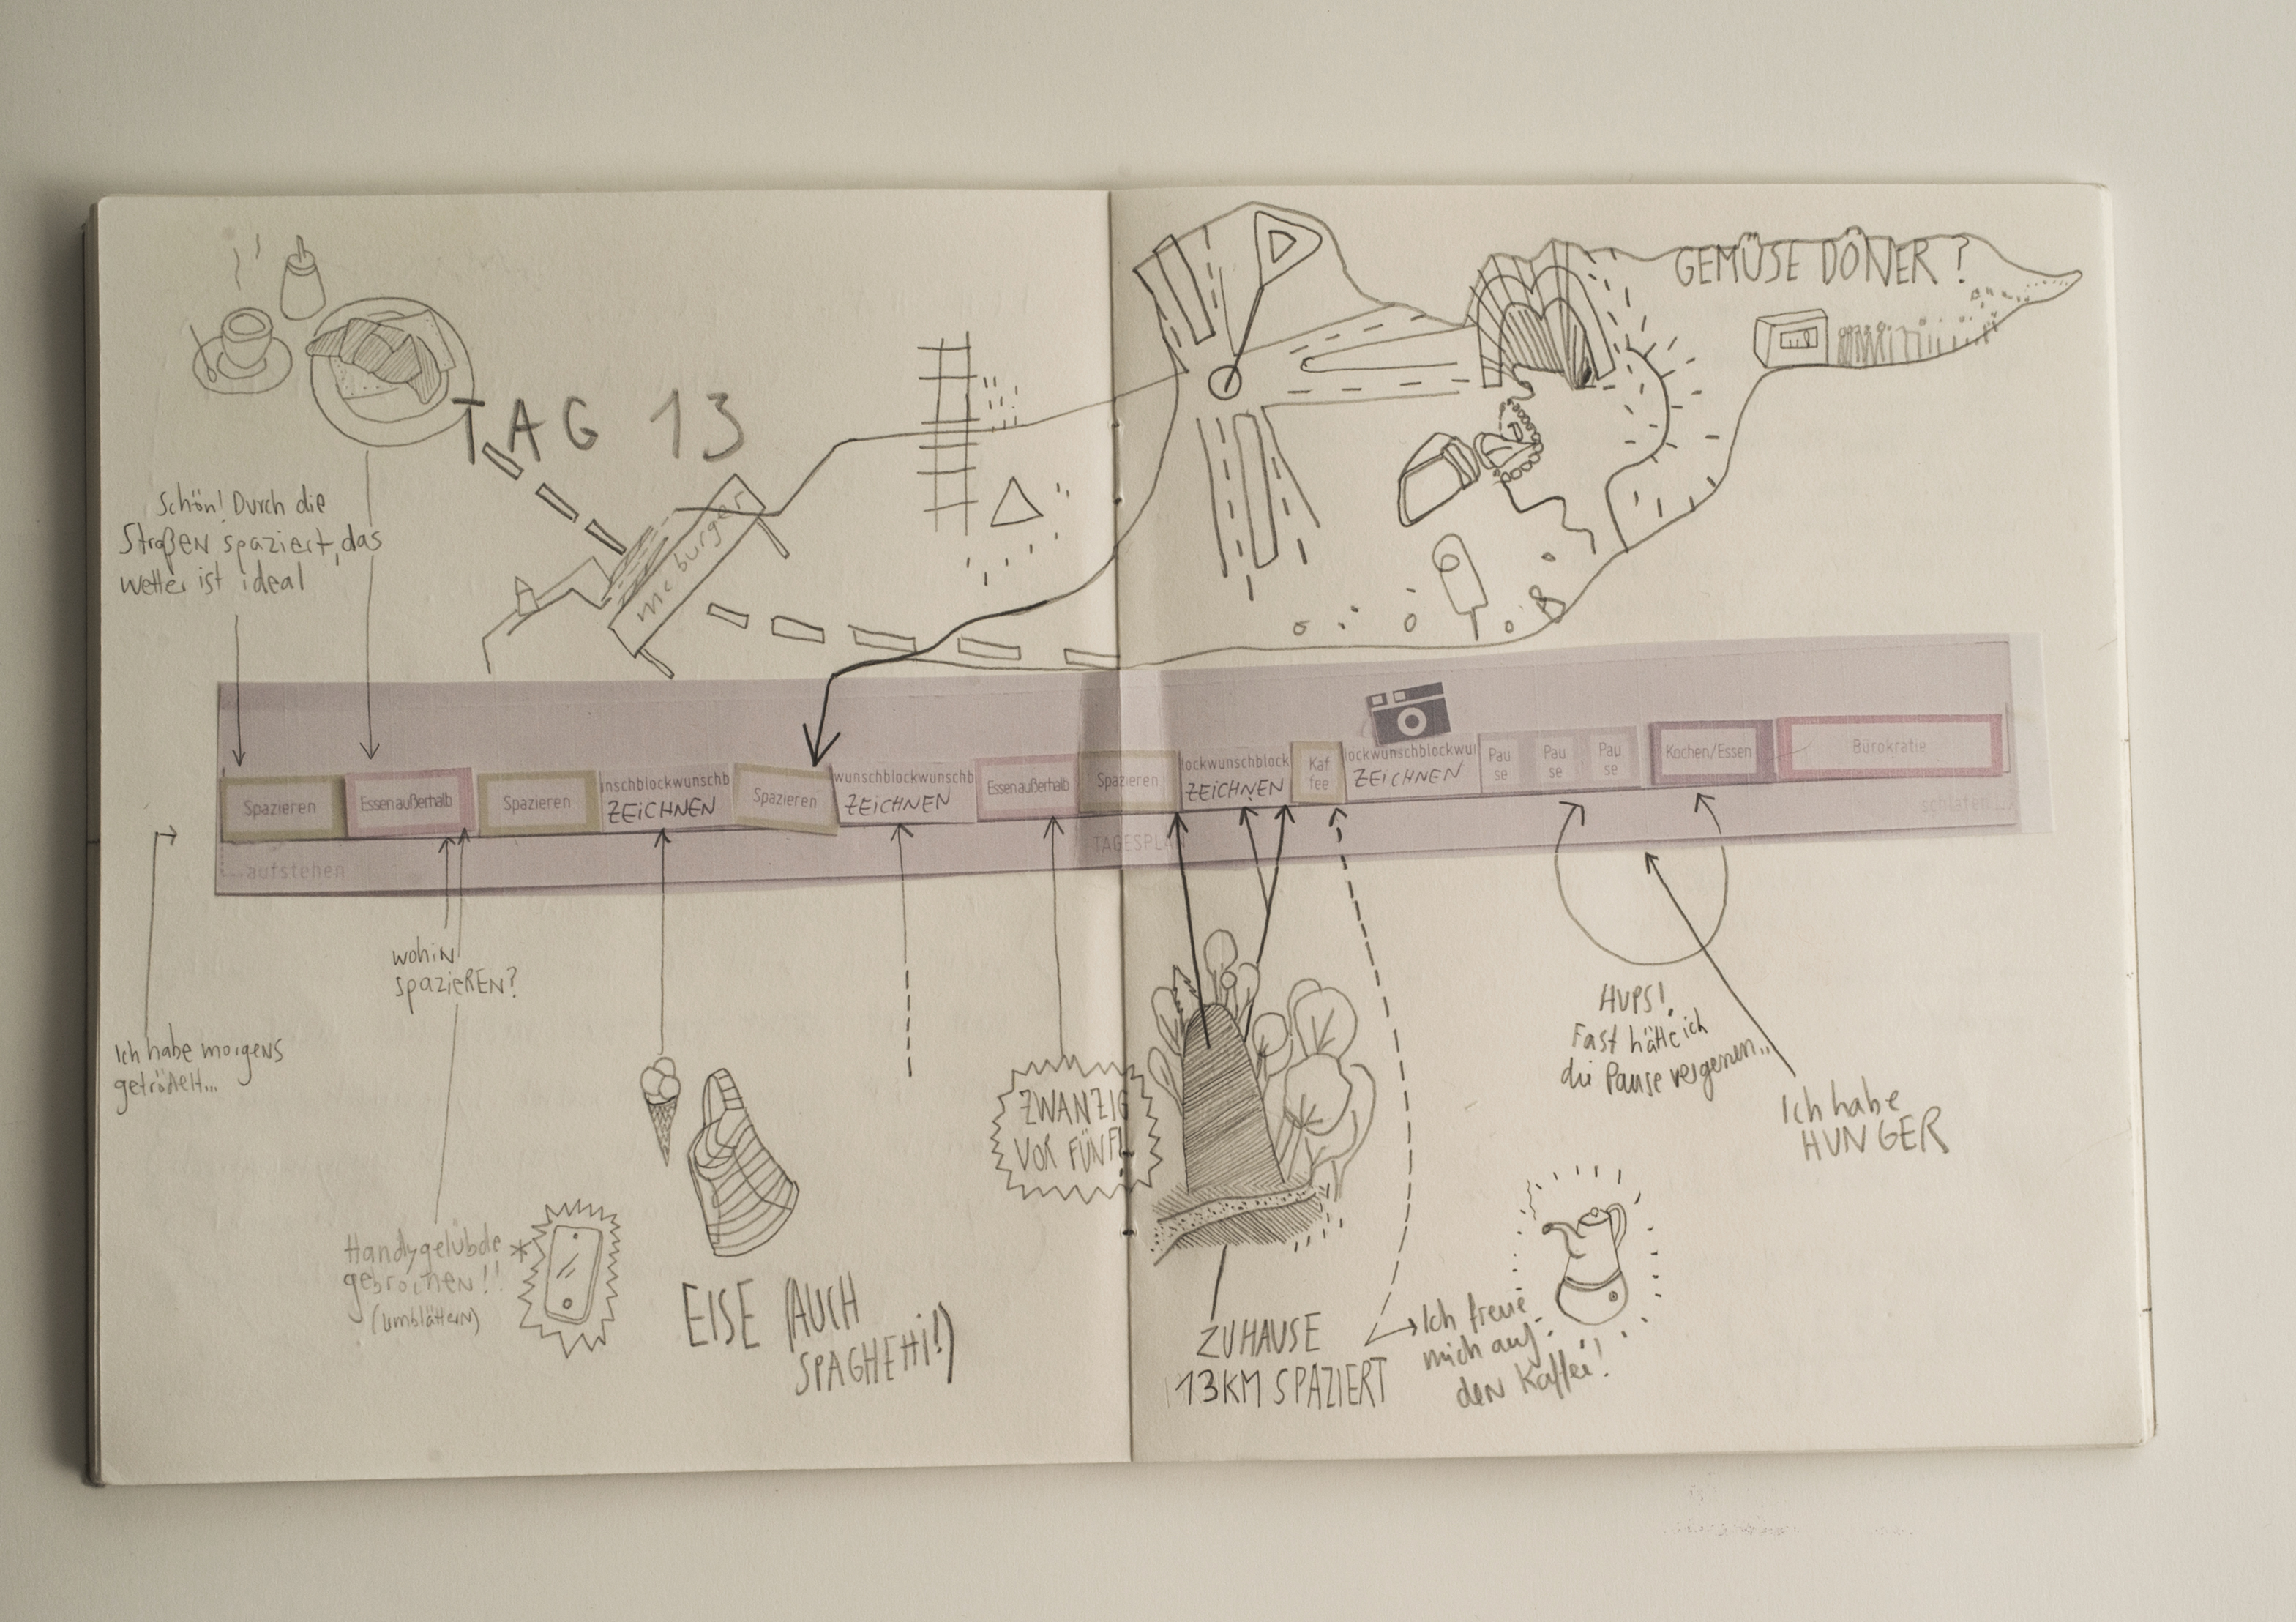 GEMÜSE DÖNER ?
TAG 13
Schön! Durch die
Straßen spaziert, das
wetter ist ideal
mc burger
Spazieren
Essen außerhalb
Spazieren
nschblockwunschb
ZEICHNEN
Spazieren
wunschblockwunschb
ZEICHNEN
Essen außerhalb
Spazieren
lockwunschblock
ZEICHNEN
Kaf
fee
lockwunschblockwu
ZEICHNEN
Pau
se
Pau
se
Pau
se
Kochen/Essen
Bürokratie
...aufstehen
TAGESPLAN
schlafen...
wohin
spazieren?
Ich habe morgens
getrödelt...
Handygelübde *
gebrochen!!
(umblättern)
EISE (AUCH
SPAGHETTI!)
ZWANZIG
VOR FÜNF!
ZUHAUSE
13KM SPAZIERT
Ich freue
mich auf
den Kaffee!
HUPS!
Fast hätte ich
die Pause vergessen...
Ich habe
HUNGER